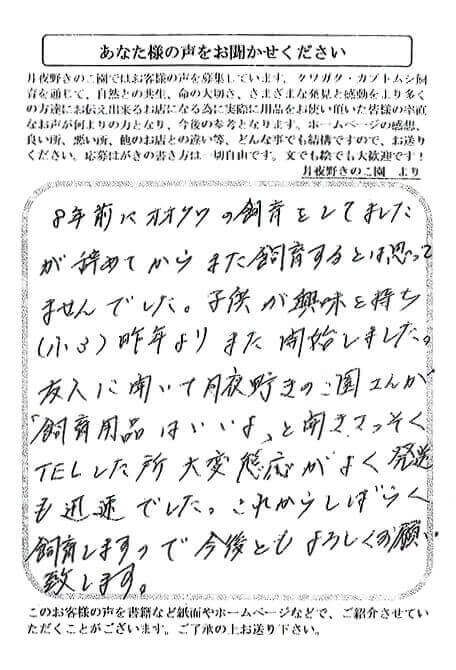 あなた様の声をお聞かせください
月夜野きのこ園ではお客様の声を募集しています。クワガタ・カブトムシ飼
育を通じて、自然との共生、命の大切さ、さまざまな発見と感動をより多く
の方達にお伝え出来るお店になる為に実際に用品をお使い頂いた皆様の率直
なお声が何よりの力となり、今後の参考となります。ホームページの感想、
良い所、悪い所、他のお店との違い等、どんな事でも結構ですので、お送り
ください。応募はがきの書き方は一切自由です。文でも絵でも大歓迎です！
月夜野きのこ園　より
8年前にオオクワの飼育をしてました
が辞めてからまた飼育するとは思って
ませんでした。子供が興味を持ち
(小3)昨年よりまた開始しました。
友人に聞いて月夜野きのこ園さんが
「飼育用品はいいよ」と聞きさっそく
TELした所大変態応がよく発送
も迅速でした。これからしばらく
飼育しますので今後ともよろしくお願い
致します。
このお客様の声を書籍など紙面やホームページなどで、ご紹介させてい
ただくことがございます。ご了承の上お送り下さい。